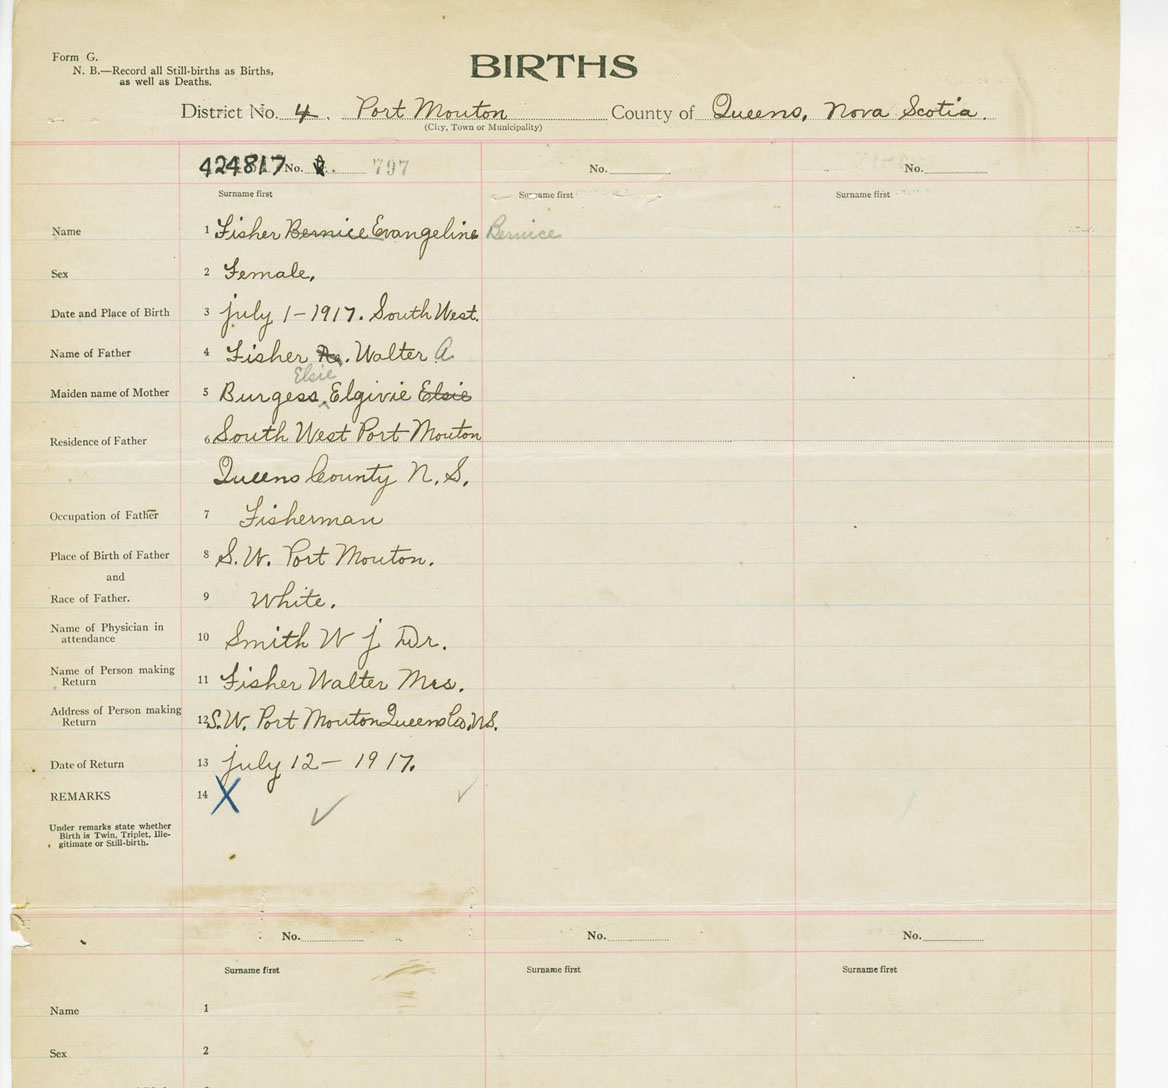 Form G.
N. B.—Record all Still-births as Births,
as well as Deaths.
BIRTHS
District No. 4. Port Mouton County of Queens, Nova Scotia.
(City, Town or Municipality)
424817 No. 797 No. No.
Surname first Surname first Surname first
Name 1 Fisher Bernice Evangeline Bernice
Sex 2 Female,
Date and Place of Birth 3 july 1-1917. South West.
Name of Father 4 Fisher . Walter A
Elsie
Maiden name of Mother 5 Burgess, Elgivie Elsie
Residence of Father 6 South West Port Mouton
Queens County N. S,
Occupation of Father 7 Fisherman
Place of Birth of Father 8 S. W. Port Mouton.
and
Race of Father. 9 White.
Name of Physician in
attendance 10 Smith W j Dr.
Name of Person making
Return 11 Fisher Walter Mrs.
Address of Person making
Return 12 S.W. Port Mouton Queens Co, N.S.
Date of Return 13 july 12- 1917.
REMARKS 14 X
Under remarks state whether
Birth is Twin, Triplet, Ille-
gitimate or Still-birth.
No. No. No.
Surname first Surname first Surname first
Name 1
Sex 2